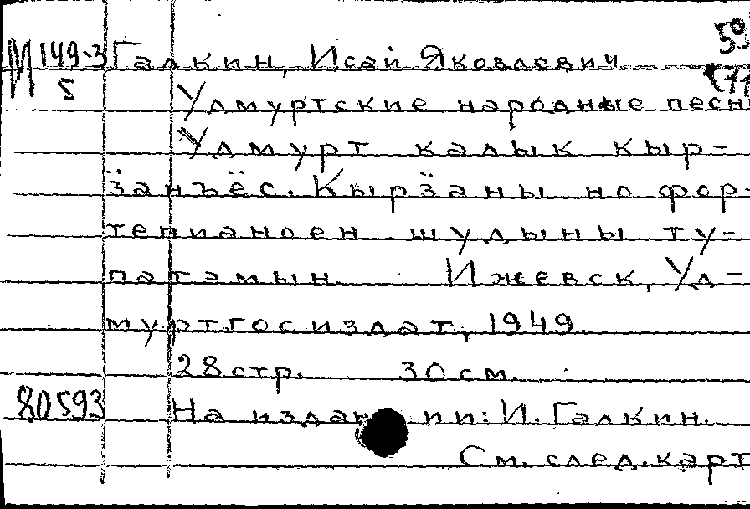 М 149-3 Галкин, Исай Яковлевич 59
5
Удмуртские народные песн
Удмурт калык кыр-
ӟанъёс. Кырӟаны но фор-
тепианоен шудыны ту-
патэмын. Ижевск, Уд-
муртгосиздат, 1949
28 стр. 30 см.
80593 На издании: И. Галкин.
См. след. карт